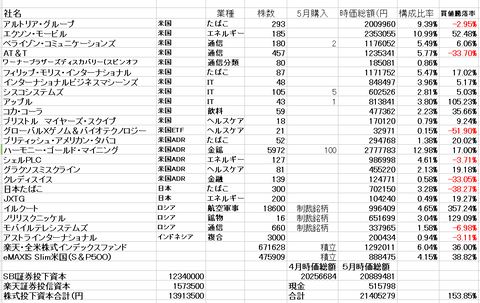 社名 業種 株数 5月購入 時価総額(円 構成比率 買値騰落率
アルトリア・グループ 米国 たばこ 293 2009960 9.39% -2.95%
エクソン・モービル 米国 エネルギー 185 2353055 10.99% 52.48%
ベライゾン・コミュニケーションズ 米国 通信 180 2 1176052 5.49% 6.06%
AT&T 米国 通信 457 1235341 5.77% -33.70%
ワーナーブラザーズディスカバリー(スピンオフ 米国 通信分類 80 185081 0.86%
フィリップ・モリス・インターナショナル 米国 たばこ 87 1171752 5.47% 17.02%
インターナショナルビジネスマシーンズ 米国 IT 48 848497 3.96% 5.17%
シスコシステムズ 米国 IT 105 5 602526 2.81% 5.03%
アップル 米国 IT 43 1 813841 3.80% 105.23%
コカ・コーラ 米国 飲料 59 477362 2.23% 35.66%
ブリストル マイヤーズ・スクイブ 米国 ヘルスケア 18 170120 0.79% 9.24%
グローバルXゲノム&バイオテクノロジー 米国ETF ヘルスケア 21 32971 0.15% -51.90%
ブリティッシュ・アメリカン・タバコ 米国ADR たばこ 52 294768 1.38% 20.02%
ハーモニー・ゴールド・マイニング 米国ADR 金鉱 5972 100 2777783 12.98% 17.00%
シェルPLC 米国ADR エネルギー 127 986998 4.61% -3.71%
グラクソスミスクライン 米国ADR ヘルスケア 81 455220 2.13% 19.18%
クレディスイス 米国ADR 金融 139 124771 0.58% -33.05%
日本たばこ 日本 たばこ 300 702150 3.28% -38.27%
JXTG 日本 エネルギー 200 104240 0.49% 19.27%
イルクート ロシア 航空軍事 18600 制裁銘柄 996409 4.65% 357.24%
ノリリスクニッケル ロシア 鉱物 16 制裁銘柄 651699 3.04% 129.09%
モバイルテレシステムズ ロシア 通信 660 制裁銘柄 337965 1.58% -6.98%
アストライ​ンターナショナル インドネシア 複合 3000 200434 0.94% -3.11%
楽天・全米株式インデックスファンド 671628 積立 1292011 6.04% 36.00%
eMAXIS Slim米国(S&P500) 475909 積立 888475 4.15% 38.82%
4月時価総額 5月時価総額
SBI証券投下資本 12340000 20256684 20889481
楽天証券投信資本 1573500 現金 515798
株式投下資本合計(円 13913500 合計 21405279 153.85%